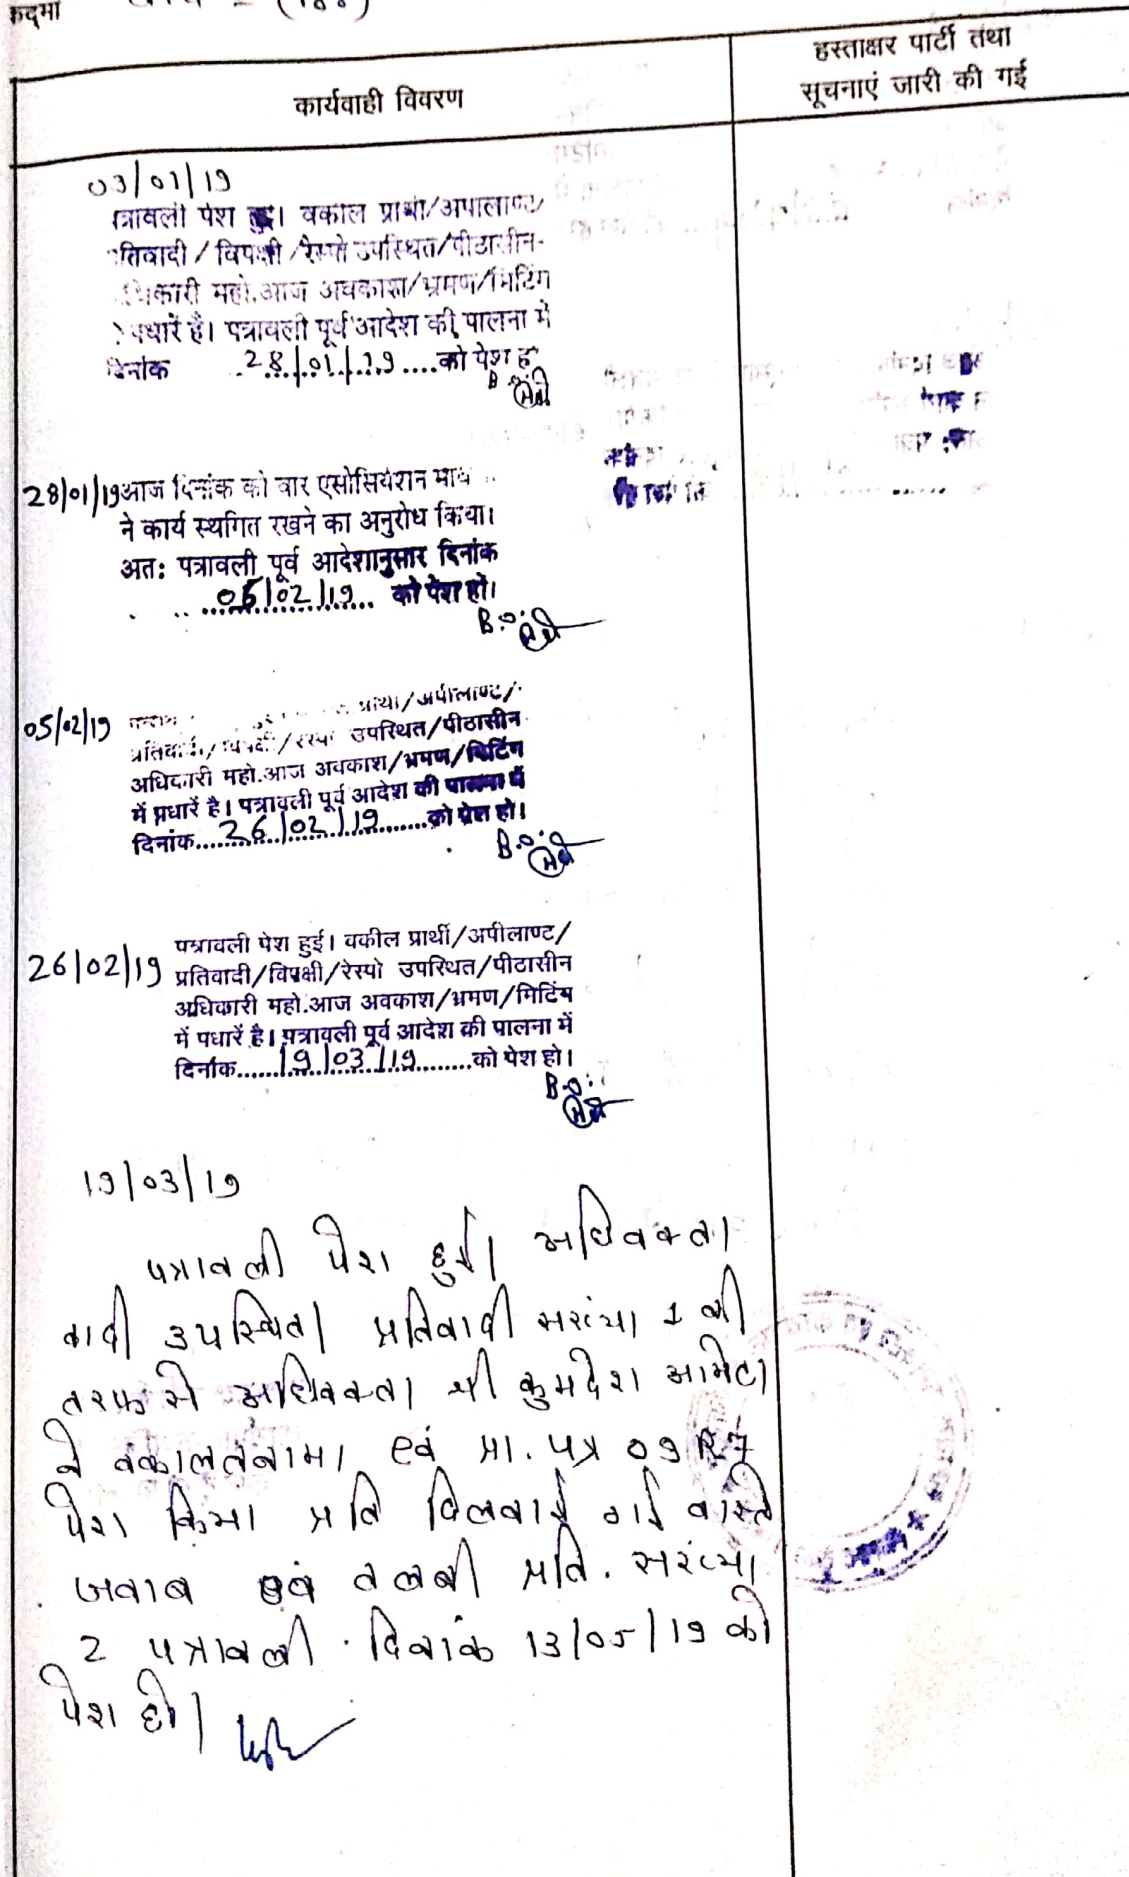 हस्ताक्षर पार्टी तथा
सूचनाएं जारी की गई
कार्यवाही विवरण
03/01/19
पेश हुई। वकील प्रार्थी/अपीलाण्ट/
/विपक्षी/रेस्पो उपस्थित/पीठासीन
महो.आज अवकाश/भ्रमण/मिटिंग
पधारें है। पत्रावली पूर्व आदेश की पालना में
दिनांक 28/01/19....को पेश
28/01/19 आज दिनांक को बार एसोसियेशन
ने कार्य स्थगित रखने का अनुरोध किया।
अतः पत्रावली पूर्व आदेशानुसार दिनांक
05/02/19 को पेश हो।
B.O.
05/02/19 /अपीलाण्ट/
उपस्थित/पीठासीन
अधिकारी महो.आज अवकाश/भ्रमण/मिटिंग
में पधारें है। पत्रावली पूर्व आदेश की पालना में
दिनांक....26/02/19....को पेश हो।
B.O.
26/02/19 पत्रावली पेश हुई। वकील प्रार्थी/अपीलाण्ट/
प्रतिवादी/विपक्षी/रेस्पो उपस्थित/पीठासीन
अधिकारी महो.आज अवकाश/भ्रमण/मिटिंग
में पधारें है। पत्रावली पूर्व आदेश की पालना में
दिनांक....19/03/19....को पेश हो।
B.O.
19/03/19
पत्रावली पेश हुई। अधिवक्ता
वादी उपस्थित। प्रतिवादी संख्या 1 की
तरफ से अधिवक्ता श्री आमेटा
ने वकालतनामा एवं प्रा. पत्र 09 R 7
पेश किया प्रति दिलवाई गई वास्ते
जवाब एवं तलबी प्रति. संख्या
2 पत्रावली दिनांक 13/05/19 को
पेश हो।